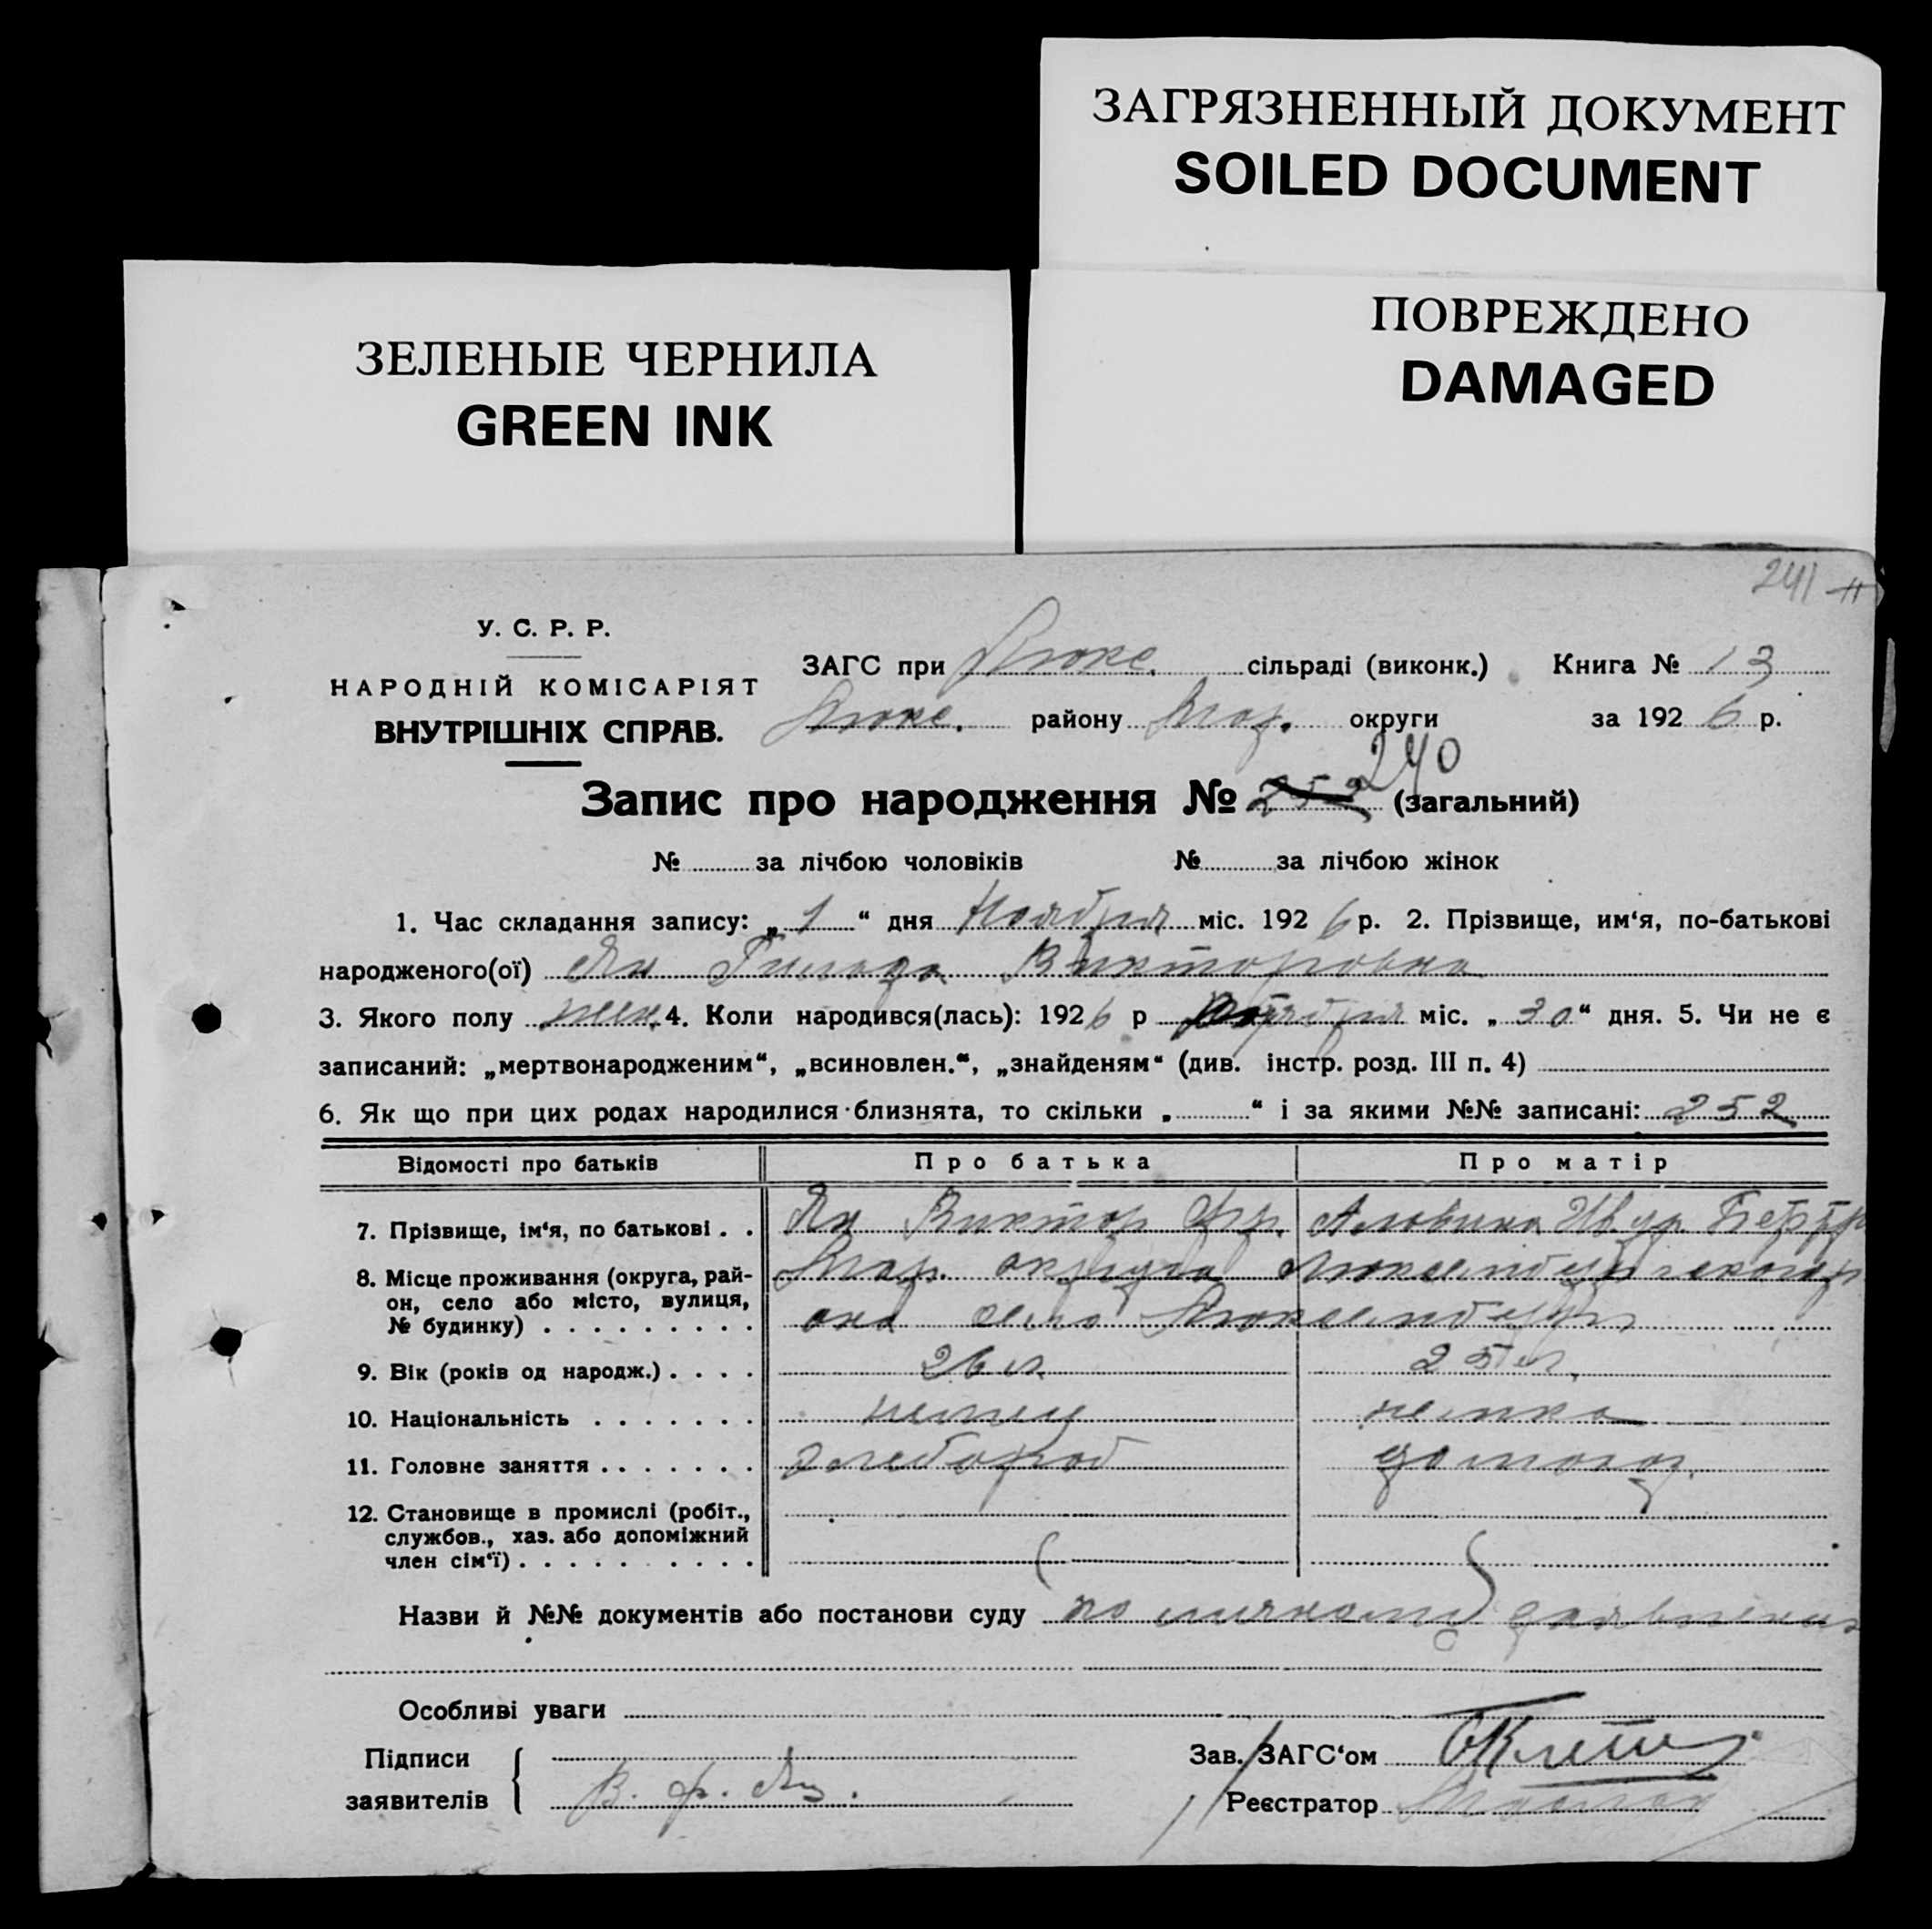 ЗАГРЯЗНЕННЫЙ ДОКУМЕНТ
SOILED DOCUMENT
ЗЕЛЕНЫЕ ЧЕРНИЛА
GREEN INK
ПОВРЕЖДЕНО
DAMAGED
241
У. С. Р. Р.
НАРОДНІЙ КОМІСАРІЯТ
ВНУТРІШНІХ СПРАВ.
ЗАГС при Люкс. сільраді (виконк.) Книга № 13
Люкс. району Мар. округи за 1926 р.
Запис про народження № 252 240 (загальний)
№ за лічбою чоловіків № за лічбою жінок
1. Час складання запису: „1“ дня Ноября міс. 1926 р. 2. Прізвище, им‘я, по-батькові
народженого(ої) Ян Гильда Викторовна
3. Якого полу жен. 4. Коли народився(лась): 1926 р міс. „30“ дня. 5. Чи не є
записаний: „мертвонародженим“, „всиновлен.“, „знайденям“ (див. інстр. розд. III п. 4)
6. Як що при цих родах народилися близнята, то скільки „ “ і за якими №№ записані: 252
Відомості про батьків Про батька Про матір
7. Прізвище, ім‘я, по батькові . . Ян Виктор Фр. Альвина Ив. ур.
8. Місце проживання (округа, рай-
он, село або місто, вулиця,
№ будинку) . . . . . . . . . Мар. округа Люксембургского рай
она село Люксембург
9. Вік (років од народж.) . . . . 26 л. 25 л.
10. Національність . . . . . . . немец немка
11. Головне заняття . . . . . . . хлебороб домохоз.
12. Становище в промислі (робіт.,
службов., хаз. або допоміжний
член сім‘ї) . . . . . . . . . .
Назви й №№ документів або постанови суду по личному заявлению
Особливі уваги
Підписи
заявителів В. Ф. Ян.
Зав. ЗАГС‘ом
Реєстратор